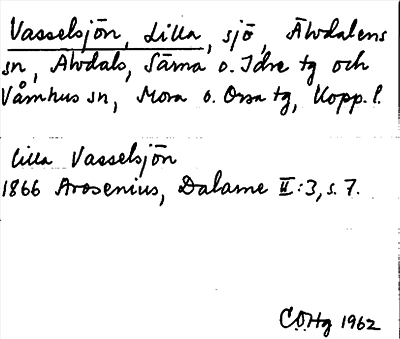 Vasselsjön, Lilla, sjö, Älvdalens
sn, Älvdals, Särna o. Idre tg och
Våmhus sn, Mora o. Orsa tg, Kopp. l.
Lilla Vasselsjön
1866 Arosenius, Dalarne II:3, s. 7.
COHg 1962